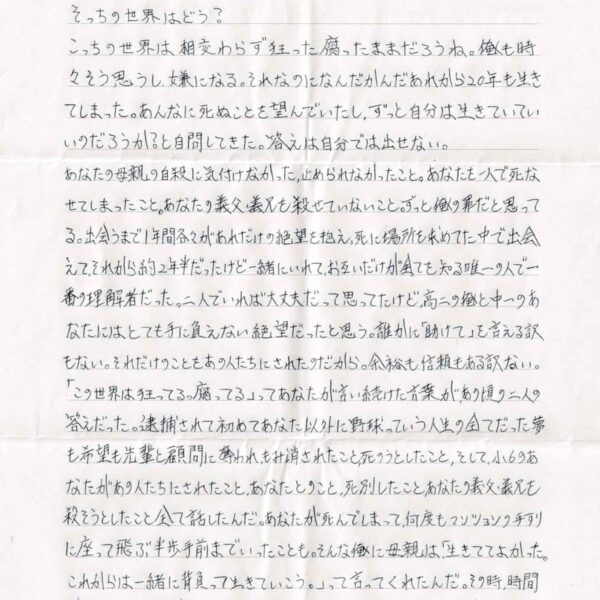 そっちの世界はどう?
こっちの世界は相交わらず狂った腐ったままだろうね。俺も時
々そう思うし、嫌になる。それなのになんだかんだあれから20年も生き
てしまった。あんなに死ぬことを望んでいたし、ずっと自分は生きていてい
いのだろうかると自問してきた。答えは自分では出せない。
あなたの母親の自殺に気付けなかった、止められなかったこと。あなたを一人で死な
せてしまったこと。あなたの義父・義兄を殺せていないこと。ずっと俺の罪だと思って
る。出会うまで1年間各々があれだけの絶望を抱え、死に場所を求めてた中で出会
えて、それから約2年半だったけど一緒にいれて、お互いだけが全てを知る唯一の人で一
番の理解者だった。二人でいれば大丈夫だって思ってたけど、高二の俺と中一のあ
なたにはとても手に負えない絶望だったと思う。誰かに「助けて」を言える訳
もない。それだけのことをあの人たちにされたのだから。余裕も信頼もある訳ない。
「この世界は狂ってる。腐ってる」ってあなたが言い続けた言葉があの頃の二人の
答えだった。逮捕されて初めてあなた以外に野球っていう人生の全てだった夢
も希望も先輩と顧問に奪われ、もみ消されたこと、死のうとしたこと、そして、小6のあ
なたがあの人たちにされたこと、あなたとのこと、死別したこと、あなたの義父・義兄を
殺そうとしたこと全て話したんだ。あなたが死んでしまって、何度もマンションの手すり
に座って飛ぶ半歩手前までいったことも。そんな俺に母親は、「生きててよかった。
これからは一緒に背負って生きていこう。」って言ってくれたんだ。その時、時間